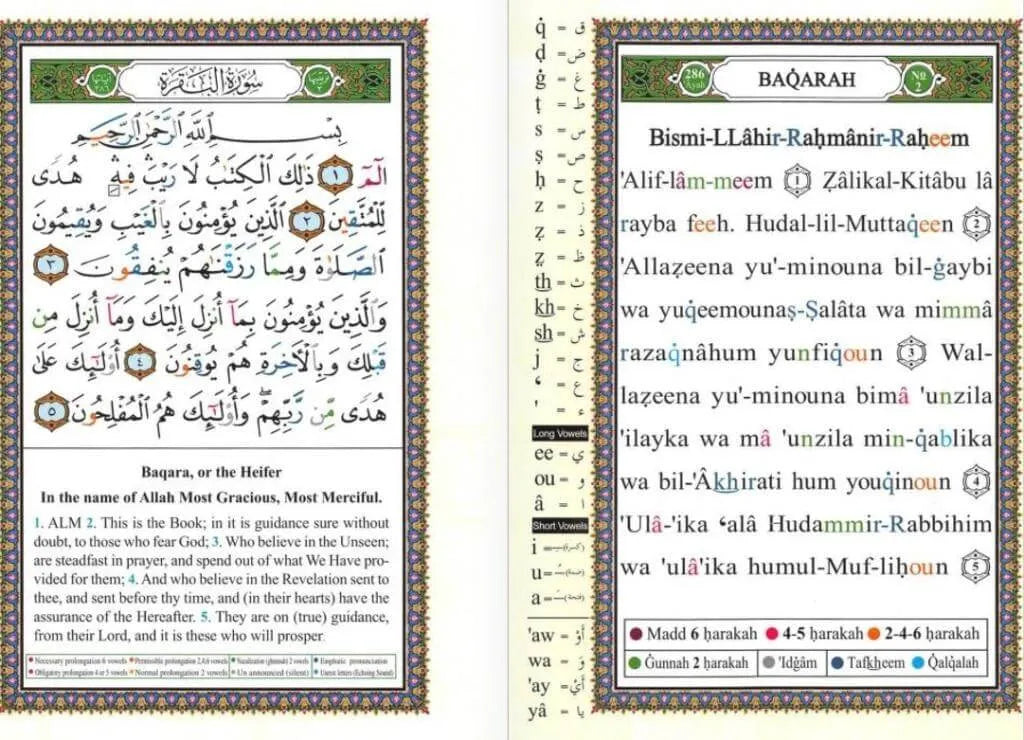 سُورَةُ البَقَرَةِ
بِسْمِ اللَّهِ الرَّحْمَٰنِ الرَّحِيمِ
الٓمٓ ١ ذَٰلِكَ الْكِتَٰبُ لَا رَيْبَ ۛ فِيهِ ۛ هُدًى
لِّلْمُتَّقِينَ ٢ الَّذِينَ يُؤْمِنُونَ بِالْغَيْبِ وَيُقِيمُونَ
الصَّلَوٰةَ وَمِمَّا رَزَقْنَٰهُمْ يُنفِقُونَ ٣
وَالَّذِينَ يُؤْمِنُونَ بِمَآ أُنزِلَ إِلَيْكَ وَمَآ أُنزِلَ مِن
قَبْلِكَ وَبِالْآخِرَةِ هُمْ يُوقِنُونَ ٤ أُولَٰٓئِكَ عَلَىٰ
هُدًى مِّن رَّبِّهِمْ ۖ وَأُولَٰٓئِكَ هُمُ الْمُفْلِحُونَ ٥
Baqara, or the Heifer
In the name of Allah Most Gracious, Most Merciful.
1. ALM 2. This is the Book; in it is guidance sure without
doubt, to those who fear God; 3. Who believe in the Unseen;
are steadfast in prayer, and spend out of what We Have pro-
vided for them; 4. And who believe in the Revelation sent to
thee, and sent before thy time, and (in their hearts) have the
assurance of the Hereafter. 5. They are on (true) guidance,
from their Lord, and it is these who will prosper.
Necessary prolongation 6 vowels Permissible prolongation 2,4,6 vowels Nazalization (ghunnah) 2 vowels Emphatic pronunciation
Obligatory prolongation 4 or 5 vowels Normal prolongation 2 vowels Un announced (silent) Unrest letters (Echoing Sound)
q̇ = ق
ḍ = ض
ġ = غ
ṭ = ط
s = س
ṣ = ص
ḥ = ح
z = ز
ẓ = ذ
ẓ = ظ
th = ث
kh = خ
sh = ش
j = ج
‘ = ع
' = ء
Long Vowels
ee = ي
ou = و
â = ا
Short Vowels
i = (كسرة)
u = (ضمة)
a = (فتحة)
'aw = أَوْ
wa = وَ
'ay = أَيْ
yâ = يا
286 Ayah BAQ̇ARAH No 2
Bismi-LLâhir-Raḥmânir-Raḥeem
'Alif-lâm-meem 1 Ẓâlikal-Kitâbu lâ
rayba feeh. Hudal-lil-Muttaq̇een 2
'Allaẓeena yu'-minouna bil-ġaybi
wa yuq̇eemounaṣ-Ṣalâta wa mimmâ
razaq̇nâhum yunfiq̇oun 3 Wal-
laẓeena yu'-minouna bimâ 'unzila
'ilayka wa mâ 'unzila min-q̇ablika
wa bil-'Âkhirati hum youq̇inoun 4
'Ulâ-'ika ‘alâ Hudammir-Rabbihim
wa 'ulâ'ika humul-Muf-liḥoun 5
Madd 6 ḥarakah 4-5 ḥarakah 2-4-6 ḥarakah
Ġunnah 2 ḥarakah 'Idġâm Tafkheem Q̇alq̇alah